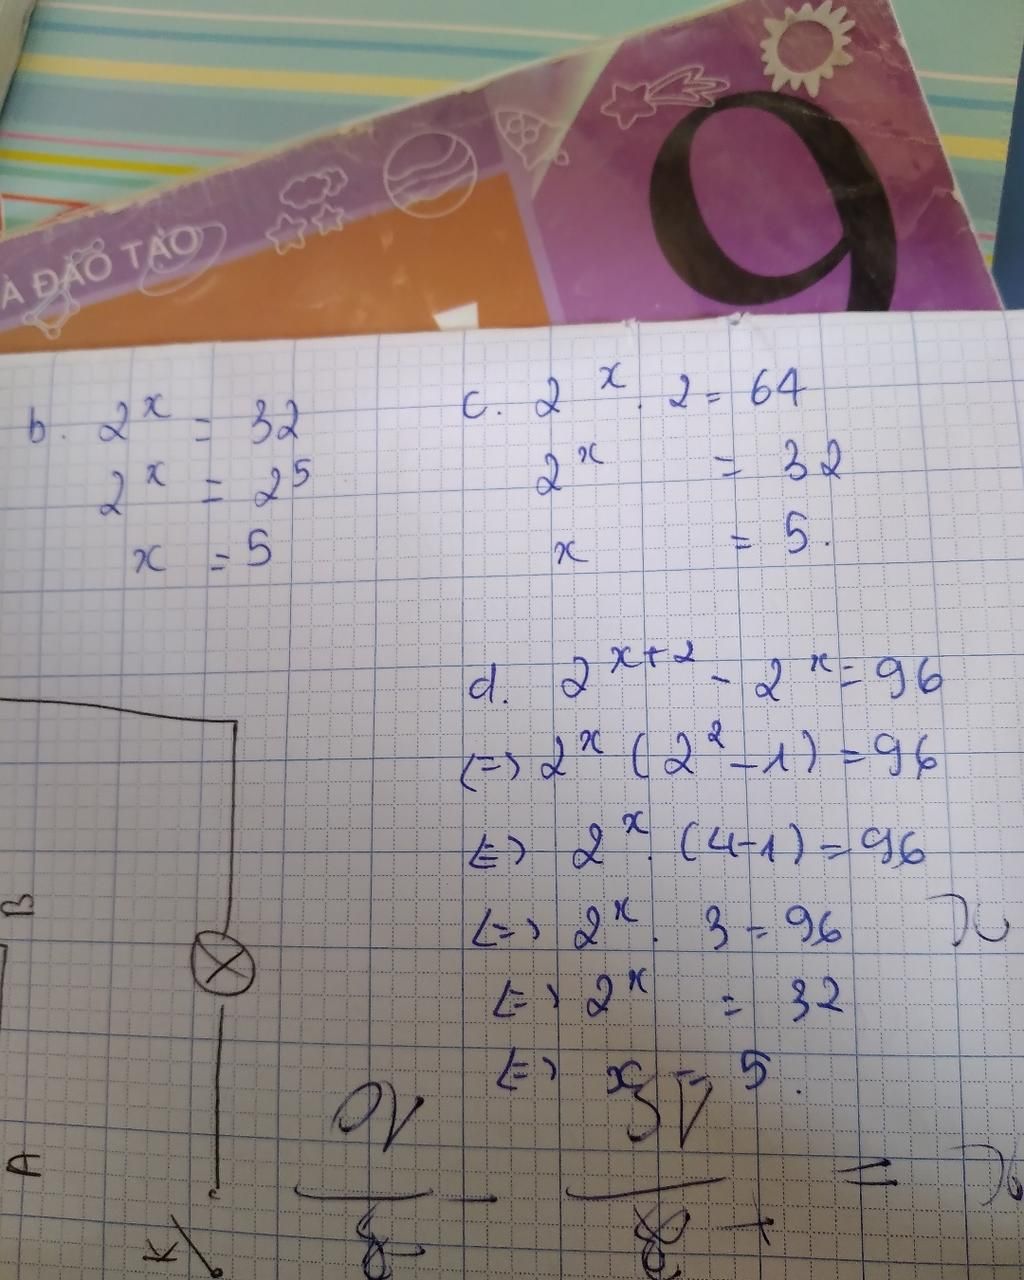 À ĐÀO TẠO
9
b. 2^x = 32
2^x = 2^5
x = 5
c. 2^x . 2 = 64
2^x = 32
x = 5.
d. 2^{x+2} - 2^x = 96
<=> 2^x (2^2 - 1) = 96
<=> 2^x . (4-1) = 96
<=> 2^x . 3 = 96
<=> 2^x = 32
<=> x = 5.
B
A
K